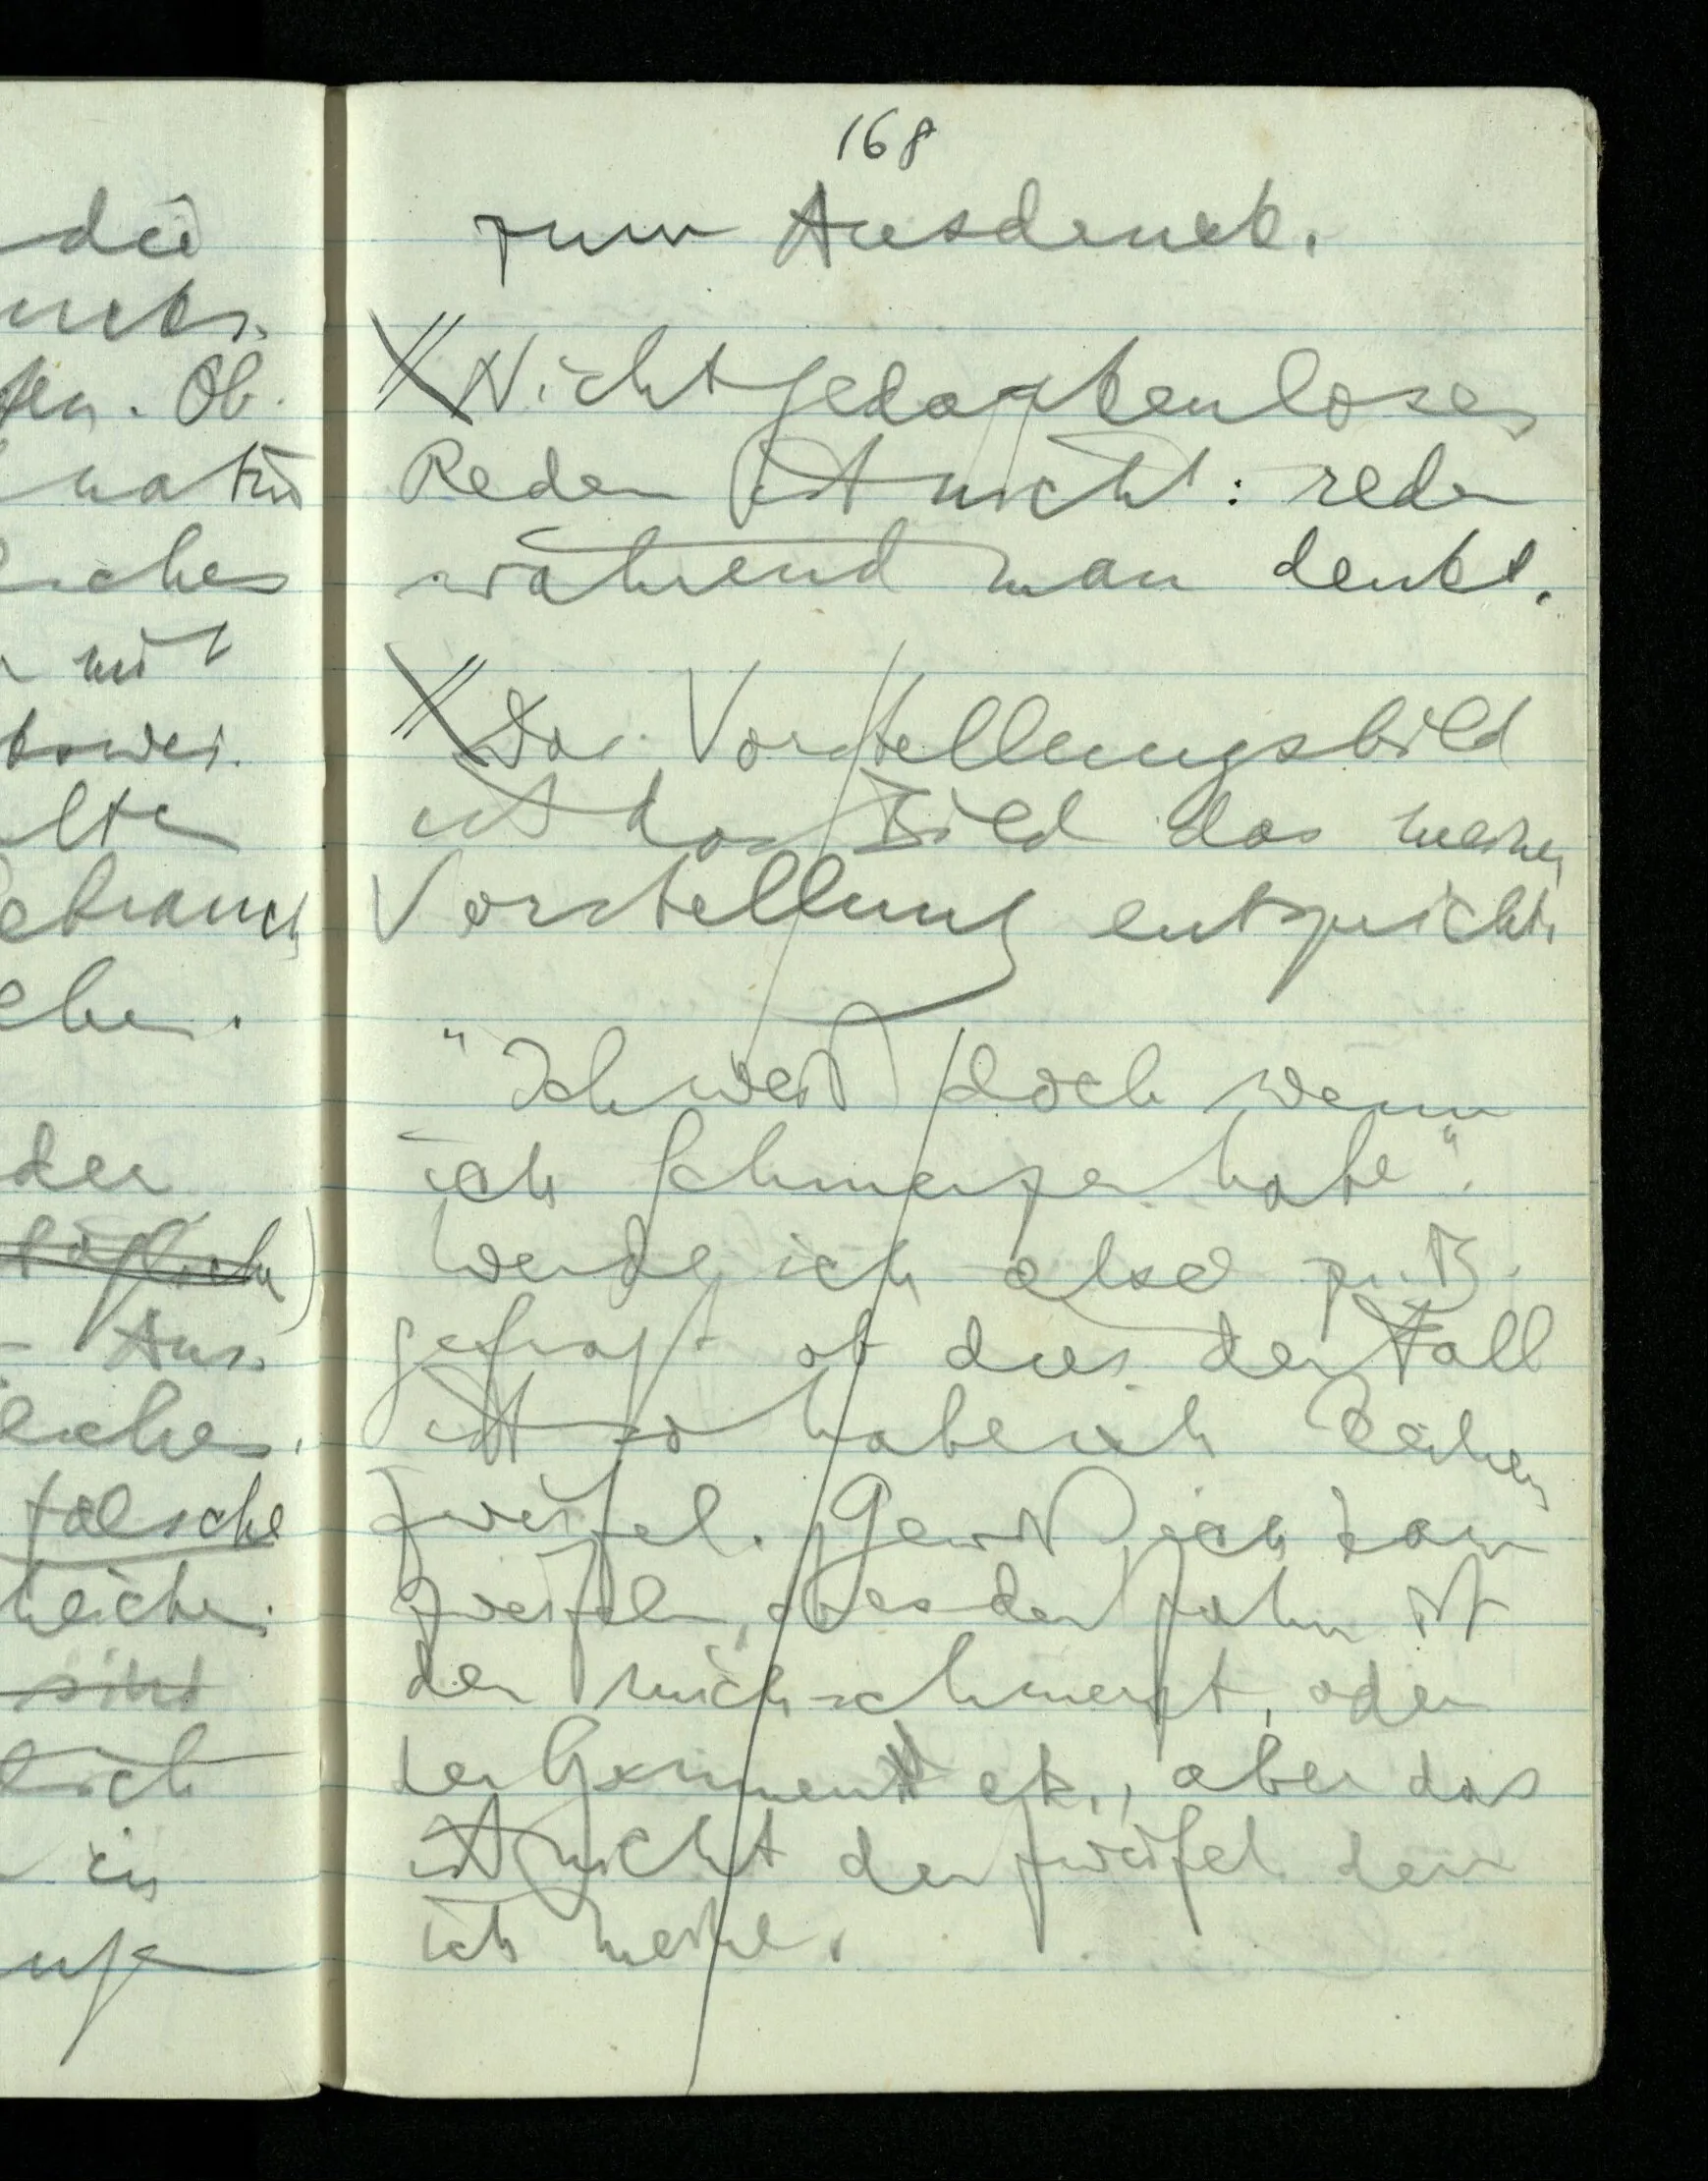 die
ucks.
ten. Ob.
natür
liches
mit
kswei.
alten
Gebrauch
ehen.
der
Aus.
leiches.
falsche
sind
lich
in
168
zum Ausdruck.
\// Nicht gedankenloses
Reden ist nicht: reden
während man denkt.
\// Das Vorstellungsbild
ist das Bild das meiner
Vorstellung entspricht.
"Ich weiß doch wenn
ich Schmerzen habe".
Werde ich also z.B.
gefragt ob dies der Fall
ist so habe ich keinen
Zweifel. Gewiß ich kann
zweifeln, ob es der Zahn ist
der mich schmerzt, oder
der Gaumen etc., aber das
ist nicht der Zweifel den
ich meine.